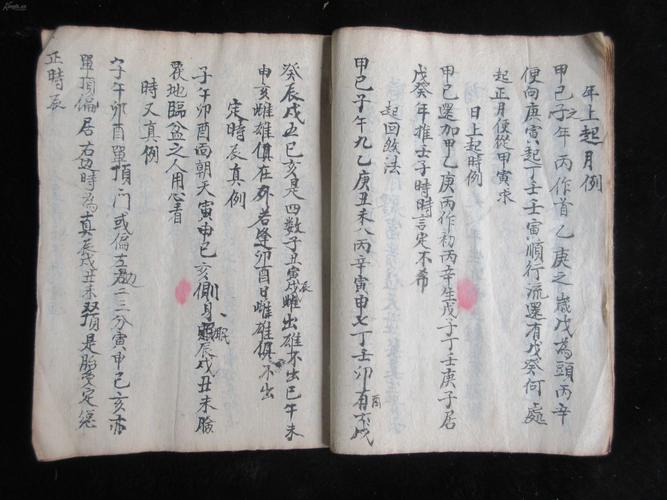 年上起月例
甲己之年丙作首乙庚之歲戊為頭丙辛
便向庚寅起丁壬壬寅順行流還有戊癸何處
起正月便從甲寅求
日上起時例
甲己還加甲乙庚丙作初丙辛生戊子丁壬庚子居
戊癸年推壬子時時言定不希
起回 法
甲己子午九乙庚丑未八丙辛寅申七丁壬卯酉六戊
癸辰戌五巳亥是四数子丑寅戌雌出雄不出巳午未
辰
申亥雌雄俱在外若逢卯酉日雌雄俱不出
定時辰真例
子午卯酉面朝天寅申巳亥側身眠辰戌丑未臉
眠
覆地臨盆之人用心看
時又真例
子午卯酉單頂门或偏左边二三分寅申巳亥亦
單頂偏居右边時為真辰戌丑未双頂是胎受定
正時辰